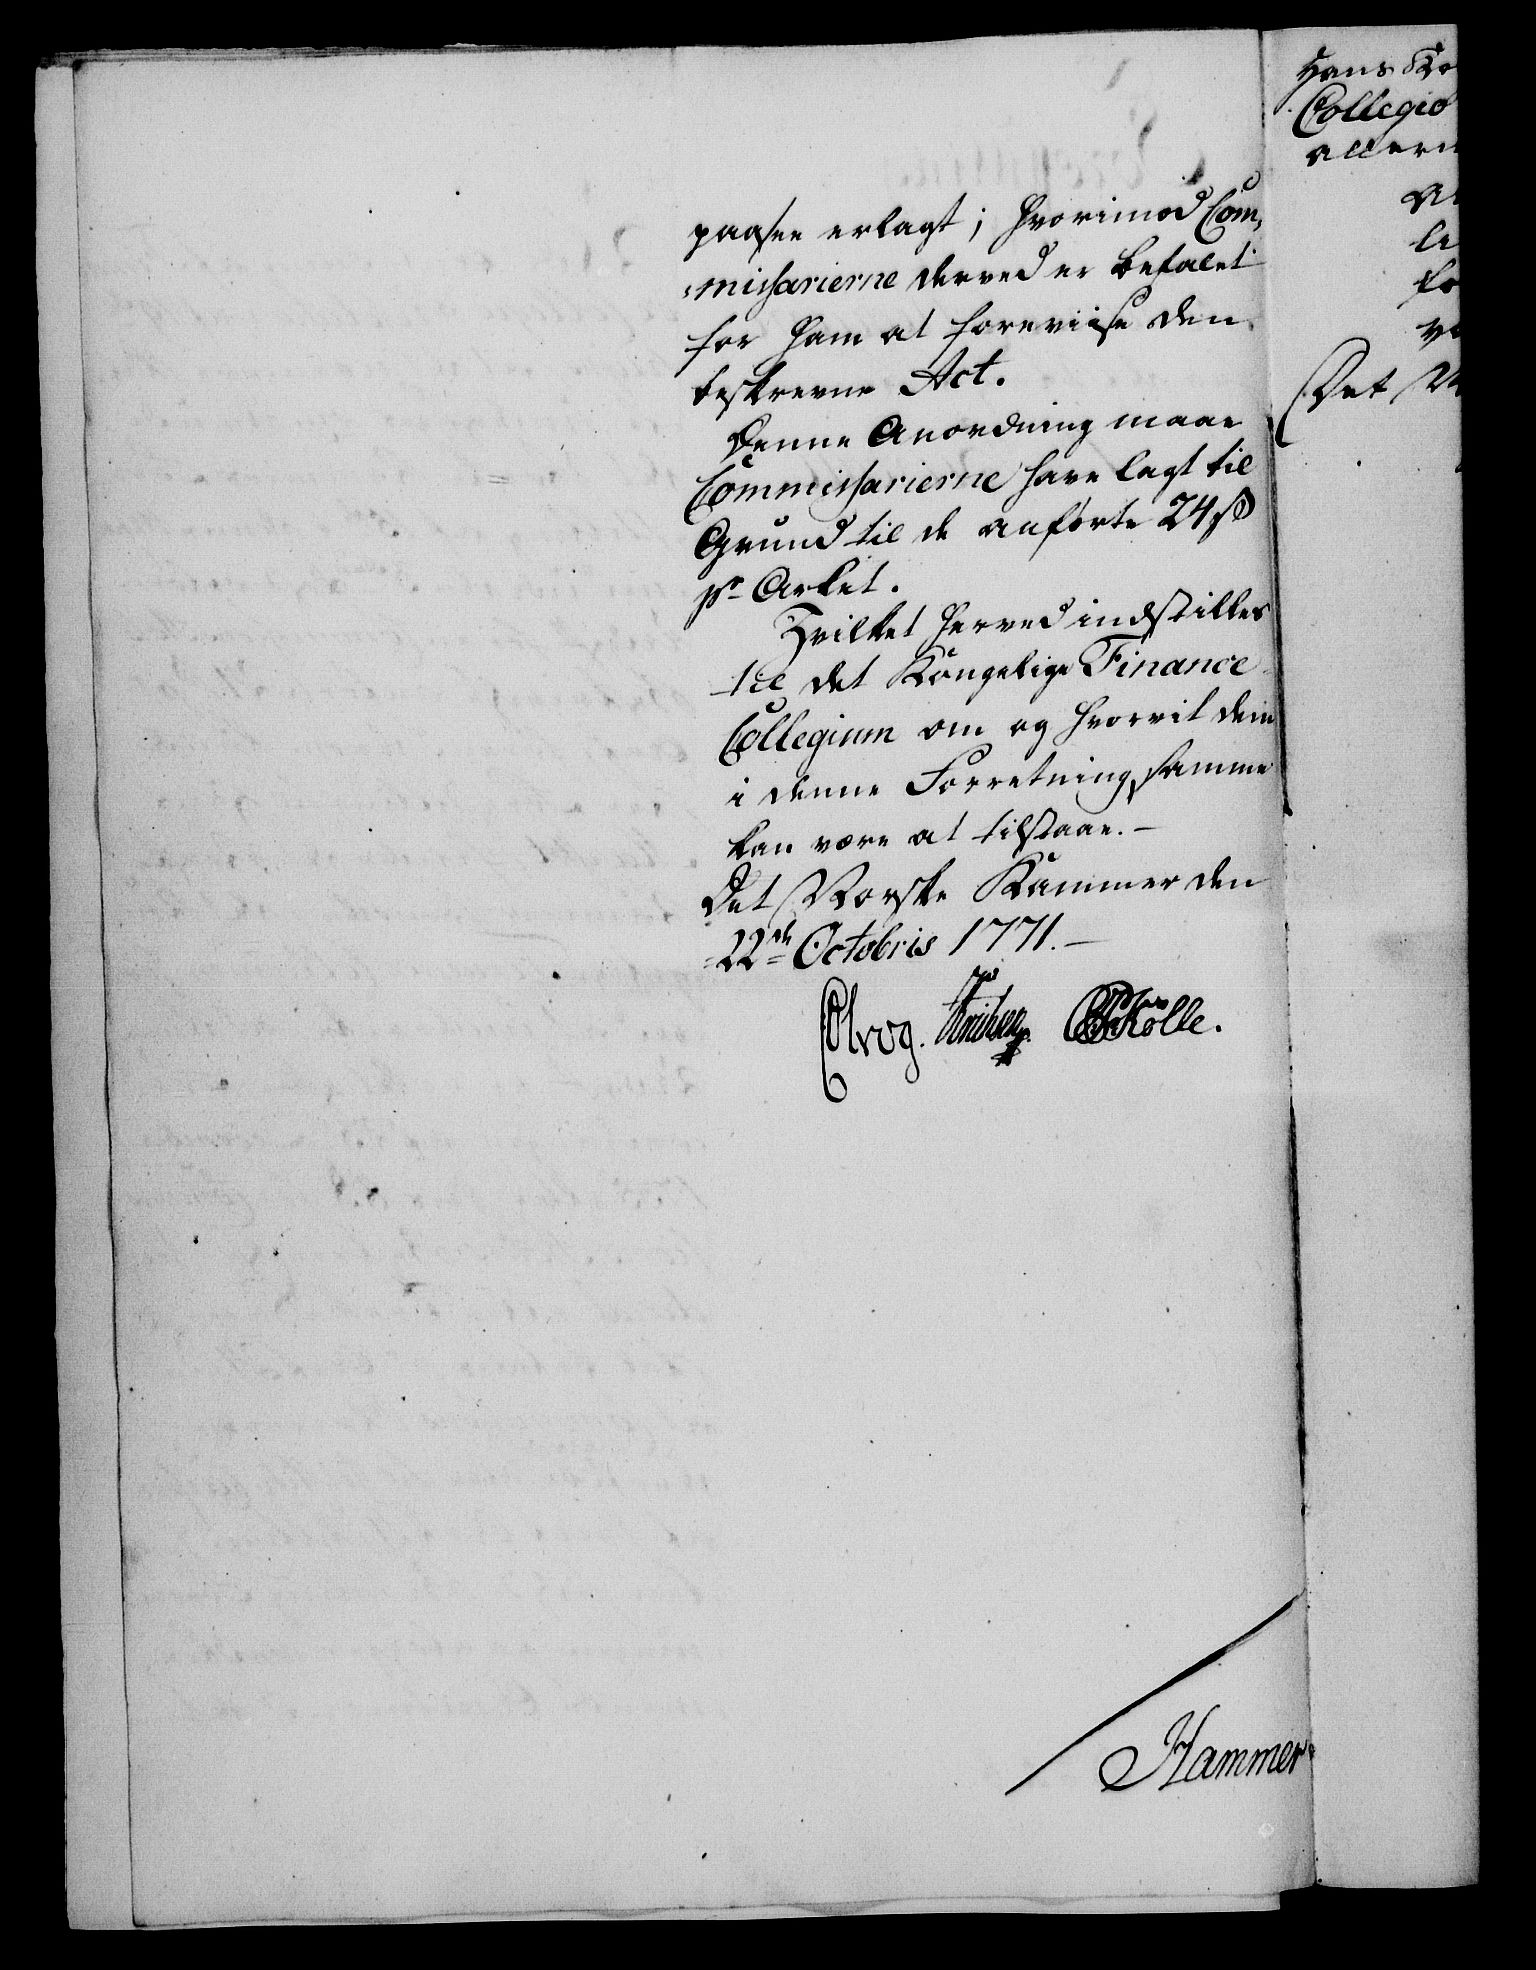 paasee erlagt; hvorimod Com-
missarierne derved er befalet
for ham at foreviise den
beskrevne Act.
Denne Anordning maae
Commissarierne have lagt til
Grund til de anførte 24 ß
pr Arket.
Hvilket herved indstilles
til det Kongelige Finance
Collegium om og hvorvit dem
i denne Forretning, samme
kan være at tilstaae. —
Det Norske Kammer den
22de Octobris 1771. —
Kølle.
Hammer
Hans
Collegio
allern
Al
le
fo
ve
Det N